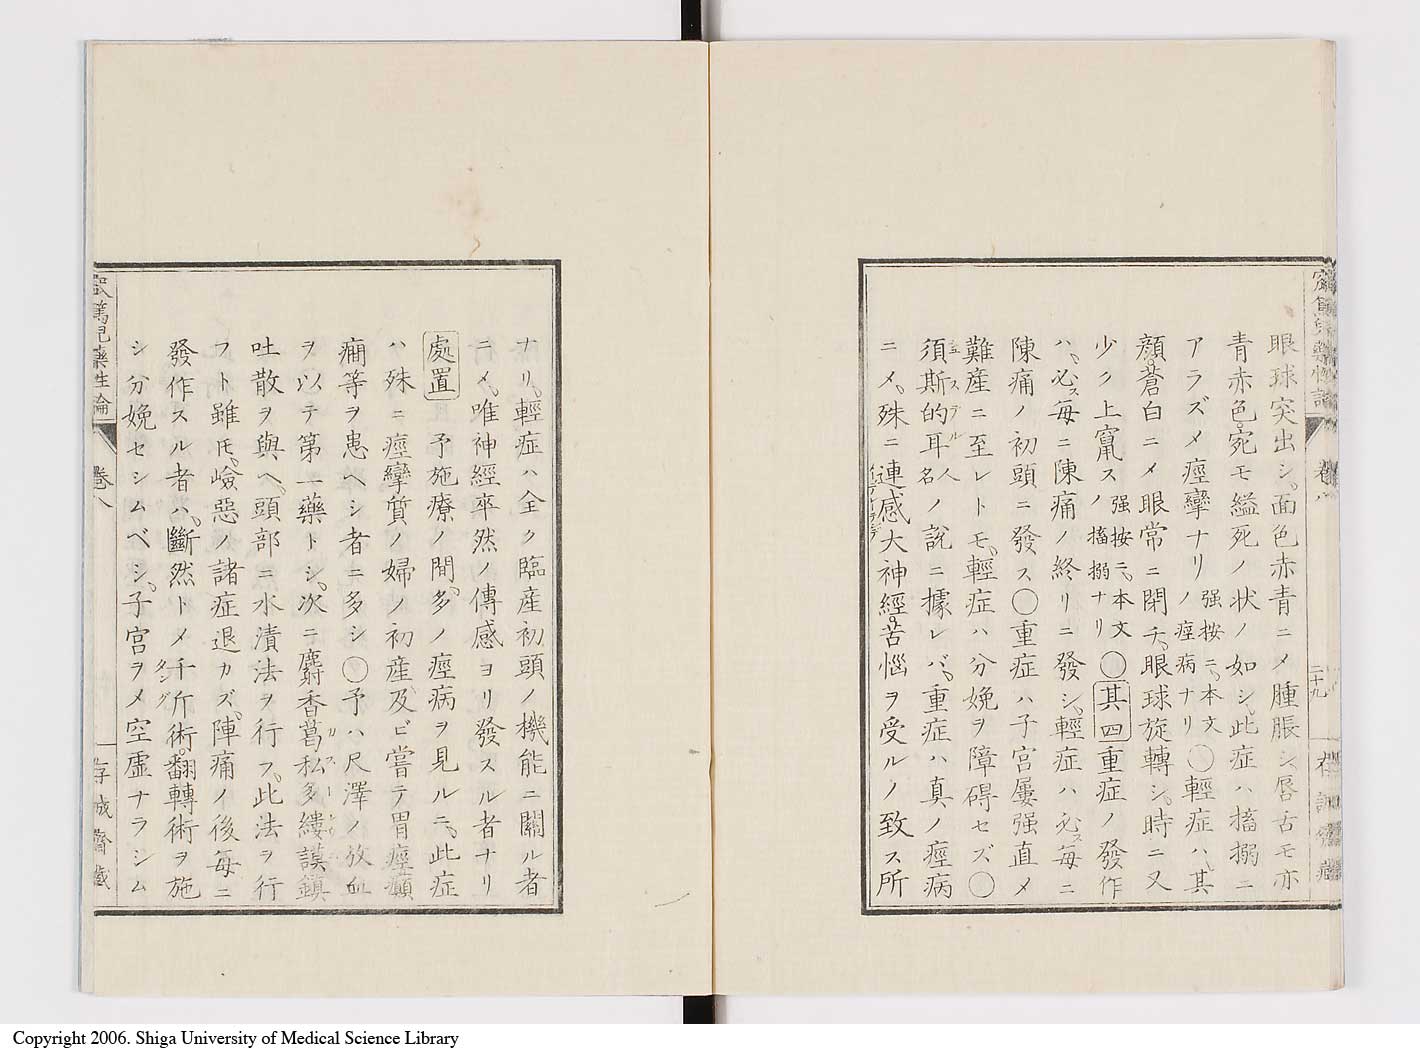 眼球突出シ、面色赤青ニメ腫脹シ、唇舌モ亦
青赤色、宛モ縊死ノ状ノ如シ、此症ハ搐搦ニ
アラズメ痙攣ナリ 强按ニ、本文ノ痙病ナリ ○輕症ハ、其
顔蒼白ニメ眼常ニ閉チ、眼球旋轉シ、時ニ又
少ク上竄ス 强按ニ、本文ノ搐搦ナリ ○其四重症ノ發作
ハ、必ス每ニ陳痛ノ終リニ發シ、輕症ハ、必ス每ニ
陳痛ノ初頭ニ發ス○重症ハ子宮屢强直メ
難産ニ至レトモ、輕症ハ分娩ヲ障碍セズ○
須斯的耳 人名 ノ說ニ據レバ、重症ハ真ノ痙病
ニメ、殊ニ連感大神經、苦惱ヲ受ルノ致ス所
ナリ、輕症ハ全ク臨産初頭ノ機能ニ關ル者
ニメ、唯神經卒然ノ傳感ヨリ發スル者ナリ
處置 予施療ノ間、多ノ痙病ヲ見ルニ、此症
ハ殊ニ痙攣質ノ婦ノ初産及ビ嘗テ胃痙癲
癇等ヲ患ヘシ者ニ多シ○予ハ尺澤ノ放血
ヲ以テ第一藥トシ、次ニ麝香葛私多縷謨鎮
吐散ヲ與ヘ、頭部ニ水漬法ヲ行フ、此法ヲ行
フト雖𪜈、嶮惡ノ諸症退カズ、陣痛ノ後每ニ
發作スル者ハ、斷然トメ千斤術、翻轉術ヲ施
シ分娩セシムベシ、子宮ヲメ空虛ナラシム
篤兒藥性論 卷八 存誠齋藏
卷八 二十九
Copyright 2006. Shiga University of Medical Science Library